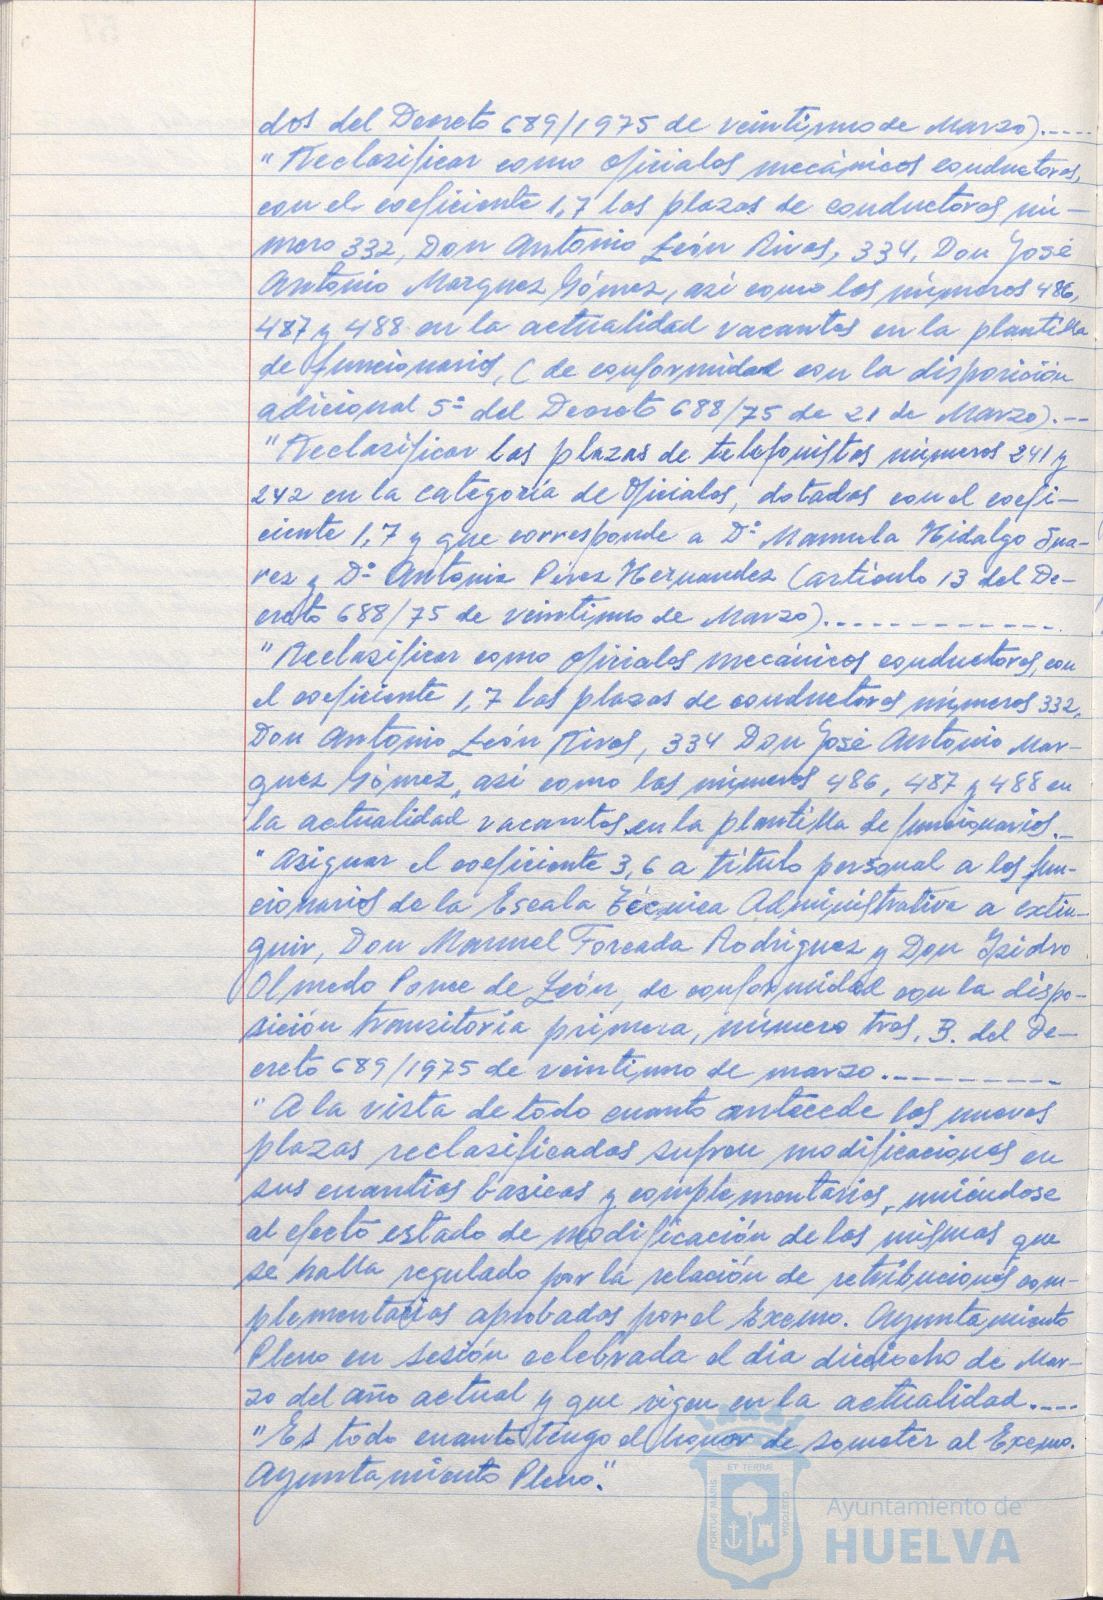 dos del Decreto 689/1975 de veintiuno de Marzo).----
"Reclasificar como oficiales mecánicos conductores,
con el coeficiente 1,7 las plazas de conductores nú-
mero 332, Don Antonio León Rivas, 334, Don José
Antonio Marquez Gómez, así como los números 486,
487 y 488 en la actualidad vacantes en la plantilla
de funcionarios, (de conformidad con la disposición
adicional 5ª del Decreto 688/75 de 21 de Marzo).--
"Reclasificar las plazas de telefonistas números 241 y
242 en la categoría de Oficiales, dotadas con el coefi-
ciente 1,7 y que corresponde a Dª Manuela Hidalgo Sua-
rez y Dª Antonia Pérez Hernandez (artículo 13 del De-
creto 688/75 de veintiuno de Marzo).------------
"Reclasificar como oficiales mecánicos conductores, con
el coeficiente 1,7 las plazas de conductores números 332,
Don Antonio León Rivas, 334 Don José Antonio Mar-
quez Gómez, así como los números 486, 487 y 488 en
la actualidad vacantes en la plantilla de funcionarios.-
"Asignar el coeficiente 3,6 a título personal a los fun-
cionarios de la Escala Técnica Administrativa a extin-
guir, Don Manuel Forcada Rodriguez y Don Isidro
Olmedo Ponce de León, de conformidad con la dispo-
sición transitoria primera, número tres, B. del De-
creto 689/1975 de veintiuno de marzo.----------
"A la vista de todo cuanto antecede las nuevas
plazas reclasificadas sufren modificaciones en
sus cuantías básicas y complementarias, uniéndose
al efecto estado de modificación de las mismas que
se halla regulado por la relación de retribuciones com-
plementarias aprobadas por el Excmo. Ayuntamiento
Pleno en sesión celebrada el día dieciocho de Mar-
zo del año actual y que rigen en la actualidad.----
"Es todo cuanto tengo el honor de someter al Excmo.
Ayuntamiento Pleno".
PORTUS MARIS
ET TERRAE
CUSTODIA
Ayuntamiento de
HUELVA